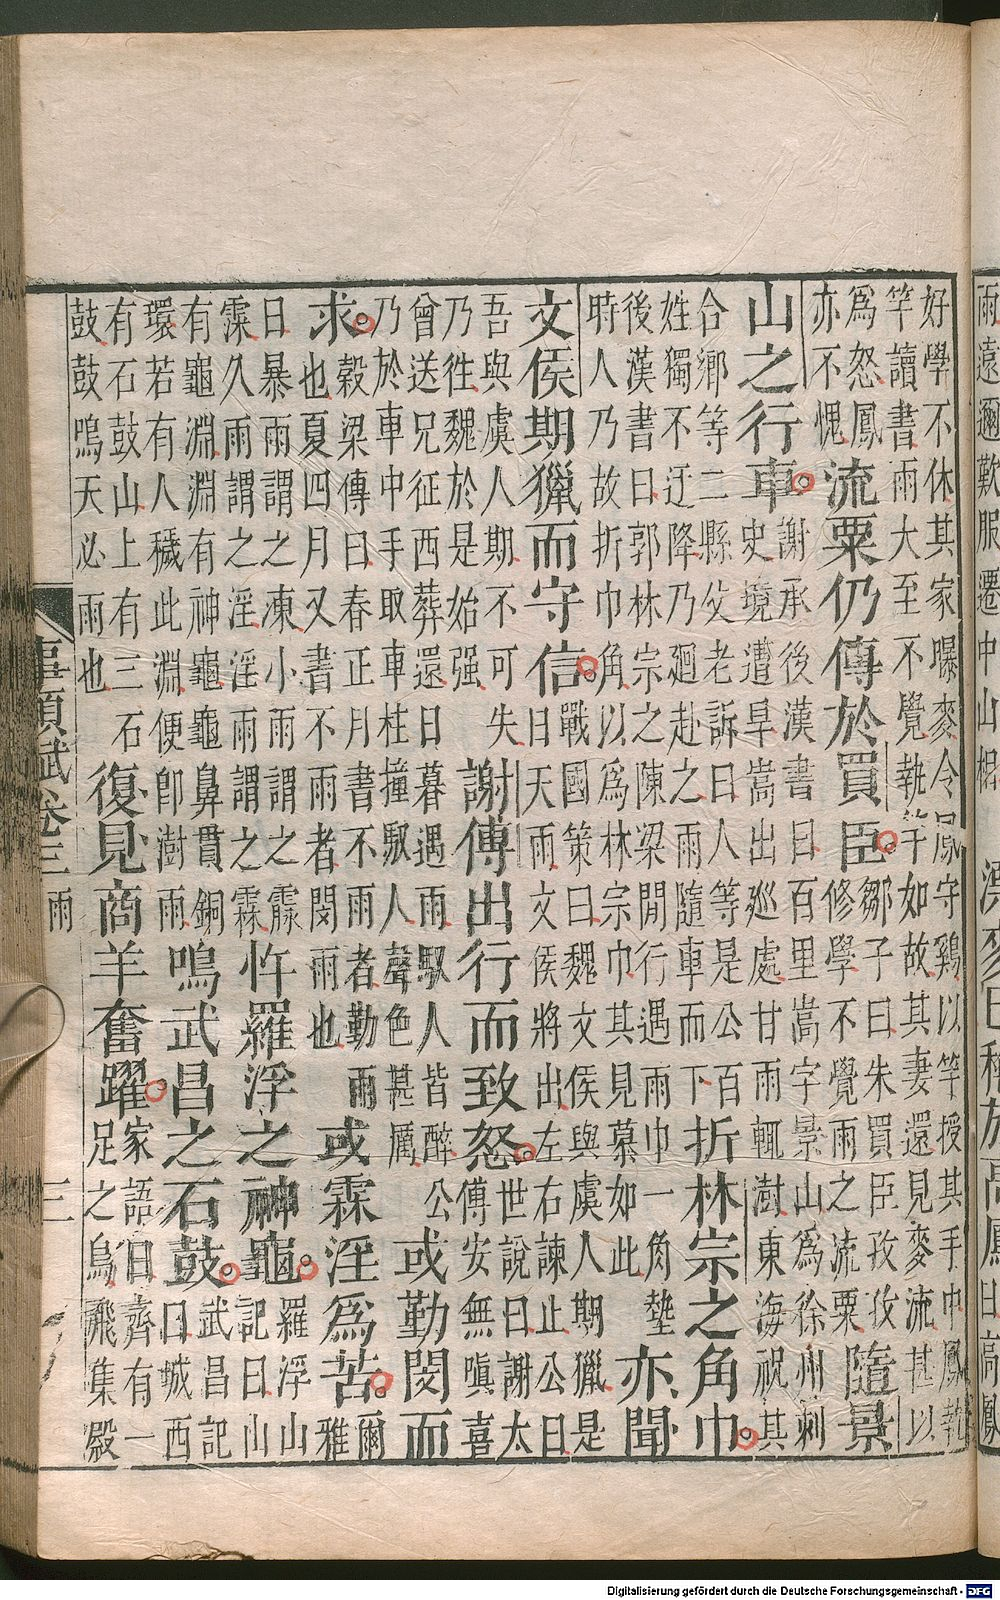 雨遠邇歎服遷中山相
漂麥已稱於高鳳
曰高鳳
好學不休其家曝麥令鳳守雞以竿授其手中鳳執
竿讀書雨大至不覺執竿如故其妻還見麥流甚以
爲怒鳳
亦不愧
流粟仍傳於買臣
鄒子曰朱買臣孜孜
修學不覺雨之流粟
隨景
山之行車
謝承後漢書曰百里嵩字景山爲徐州刺
史境遭旱嵩出巡處甘雨輒澍東海祝其
合鄉等二縣父老訴曰人等是公百
姓獨不迂降乃廻赴之雨隨車而下
折林宗之角巾
後漢書曰郭林宗之陳梁閒行遇雨巾一角墊
時人乃故折巾角以爲林宗巾其見慕如此
亦聞
文侯期獵而守信
戰國策曰魏文侯與虞人期獵是
日天雨文侯將出左右諫止公曰
吾與虞人期不可失
乃徃魏於是始强
謝傅出行而致怒
世說曰謝太
傅安無嗔喜
曾送兄征西葬還日暮遇雨馭人皆醉公
乃於車中手取車柱撞馭人聲色甚厲
或勤閔而
求
穀梁傳曰春正月書不雨者勤雨
也夏四月又書不雨者閔雨也
或霖淫爲苦
爾
雅
曰暴雨謂之涷小雨謂之霡
霂久雨謂之淫淫雨謂之霖
忤羅浮之神龜
羅浮山
記曰山
有龜淵淵有神龜龜鼻貫銅
環若有人穢此淵便卽澍雨
鳴武昌之石鼓
武昌記
曰城西
有石鼓山上有三石
鼓鼓鳴天必雨也
復見商羊奮躍
家語曰齊有一
足之鳥飛集殿
事類賦卷三 雨
三
Digitalisierung gefördert durch die Deutsche Forschungsgemeinschaft - DFG